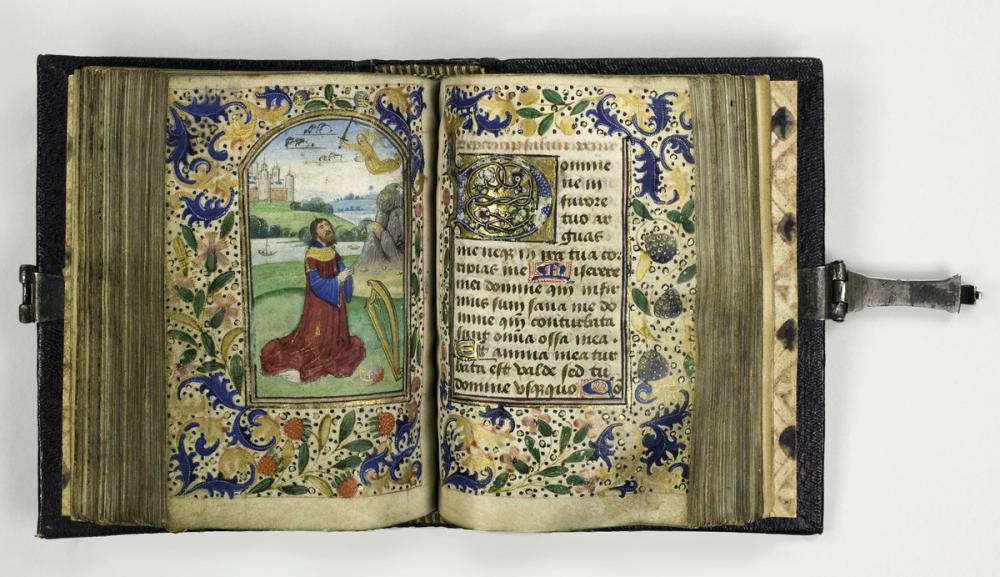 septem psalmi
Domine
ne in
furore
tuo ar
guas
me neq; in ira tua cor
ripias me Miserere
mei domine qm infir
mus sum sana me do
mine qm conturbata
sunt omia ossa mea .
Et anima mea tur
bata est valde sed tu
domine vsq;quo Co